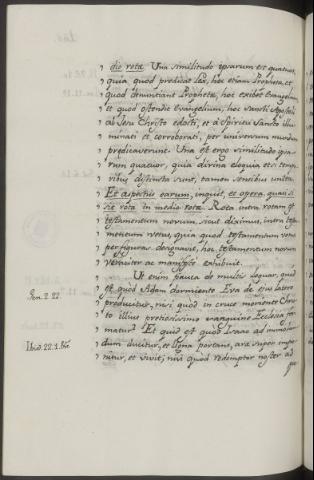 dio rotæ. Una similitudo ipsarum est quatuor,
quia quod prædicat Lex, hoc etiam Prophetæ, et
quod denuntiant Prophetæ, hoc exibet Evangelium,
et quod ostendit Evangelium, hoc sancti Apostoli
à Jesu Christo edocti, et à Spiritu Sancto illu-
minati et corroborati, per universum mundum
prædicaverunt. Una est ergo similitudo ipsa-
rum quatuor, quia divina eloquia etsi tempo-
ribus distincta sunt, tamen sensibus unita.
Et aspectus earum, inquit, et opera, quasi si
sit rota in medio rotæ. Rota intra rotam est
testamentum novum, sicut diximus, intra testa-
mentum vetus, quia quod testamentum vetus
per figuras designavit, hoc testamentum novum
veraciter ac manifestè exhibuit.
Ut enim pauca de multis loquar, quid
est quod Adam dormiente Eva de ejus latere
Gen. 2. 22.
producitur, nisi quod in cruce moriente Chris-
to illius pretiosissimo sanguine Ecclesia for-
matur? Et quid est quod Isaac ad immolan-
Ibid. 22. 1.
dum ducitur, et ligna portans, aræ super impo-
nitur, et vivit; nisi quod redemptor noster ad